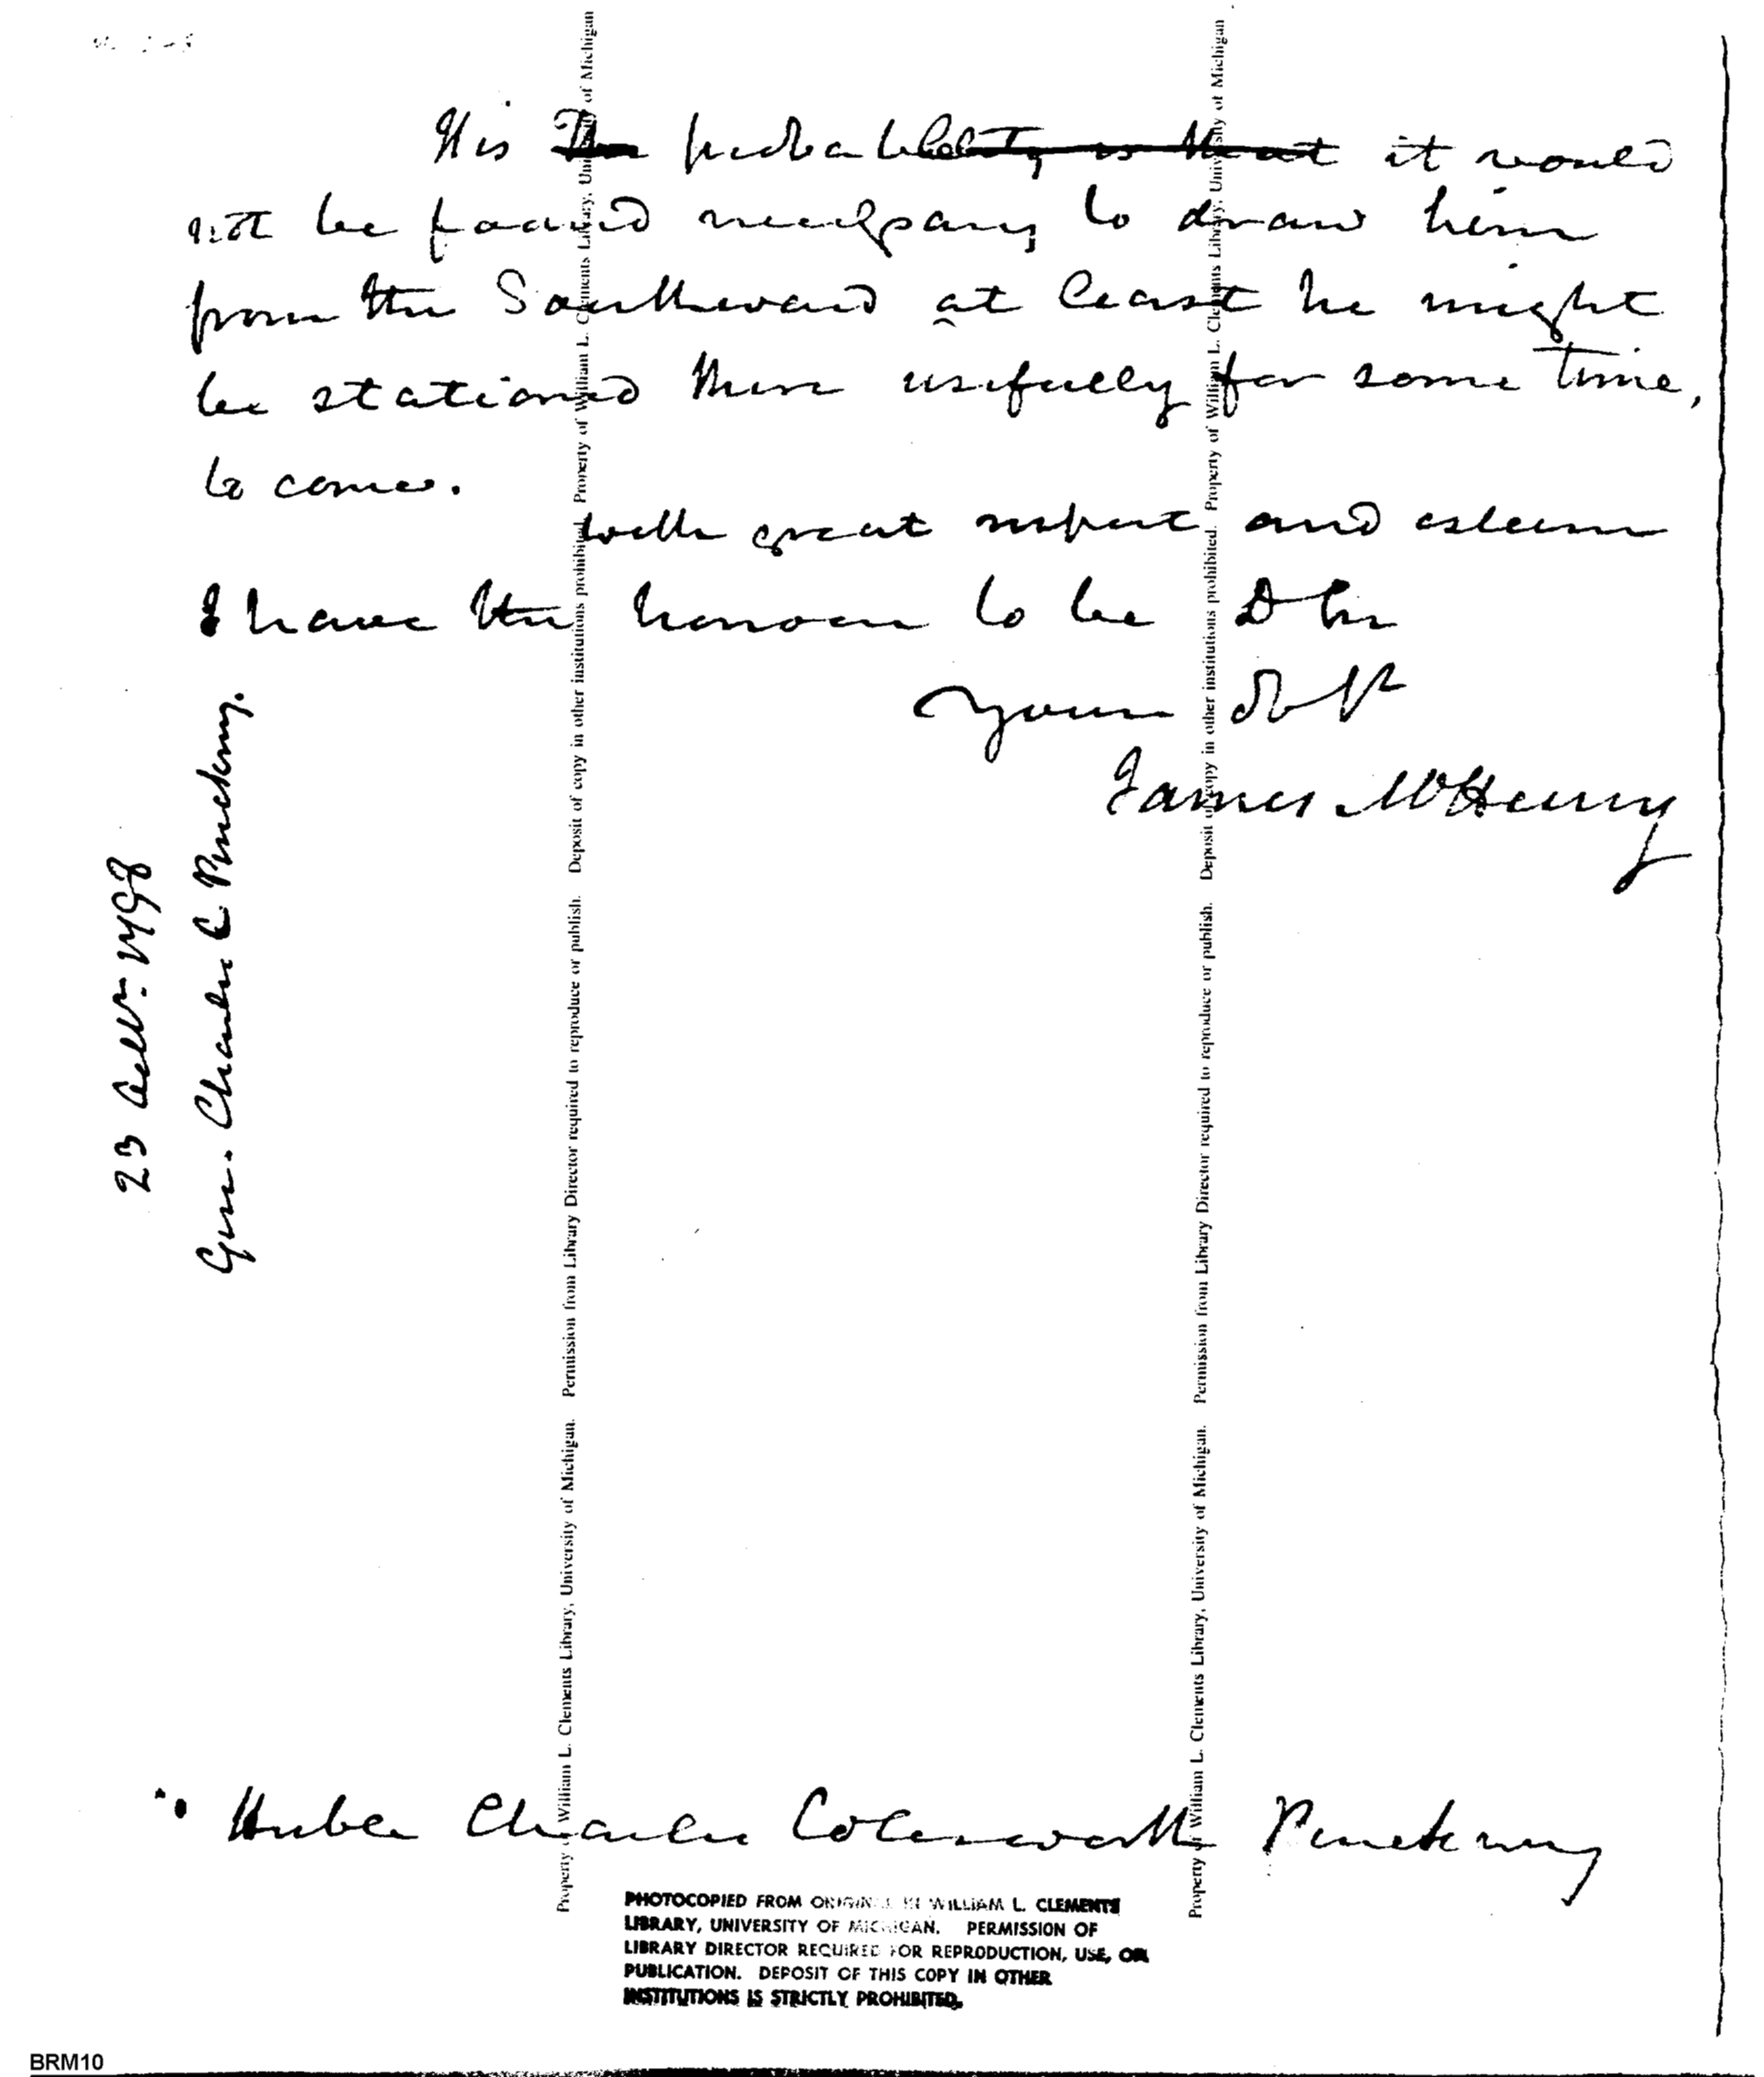 It is ~~The~~ probable~~ity is that~~ it would
not be found necessary to draw him
from the Southward at least he might
be stationed there usefully for some time,
to come.
with great respect and esteem
I have the honour to be D Sir
Your Ob St
James McHenry
23 Octr. 1798
Gen. Charles C Pinckney.
Charles Cotesworth Pinckney
Property of William L. Clements Library, University of Michigan. Permission from Library Director required to reproduce or publish. Deposit of copy in other institutions prohibited. Property of William L. Clements Library, University of Michigan
Property of William L. Clements Library, University of Michigan. Permission from Library Director required to reproduce or publish. Deposit of copy in other institutions prohibited. Property of William L. Clements Library, University of Michigan
PHOTOCOPIED FROM ORIGINAL IN WILLIAM L. CLEMENTS
LIBRARY, UNIVERSITY OF MICHIGAN. PERMISSION OF
LIBRARY DIRECTOR REQUIRED FOR REPRODUCTION, USE, OR
PUBLICATION. DEPOSIT OF THIS COPY IN OTHER
INSTITUTIONS IS STRICTLY PROHIBITED.
BRM10